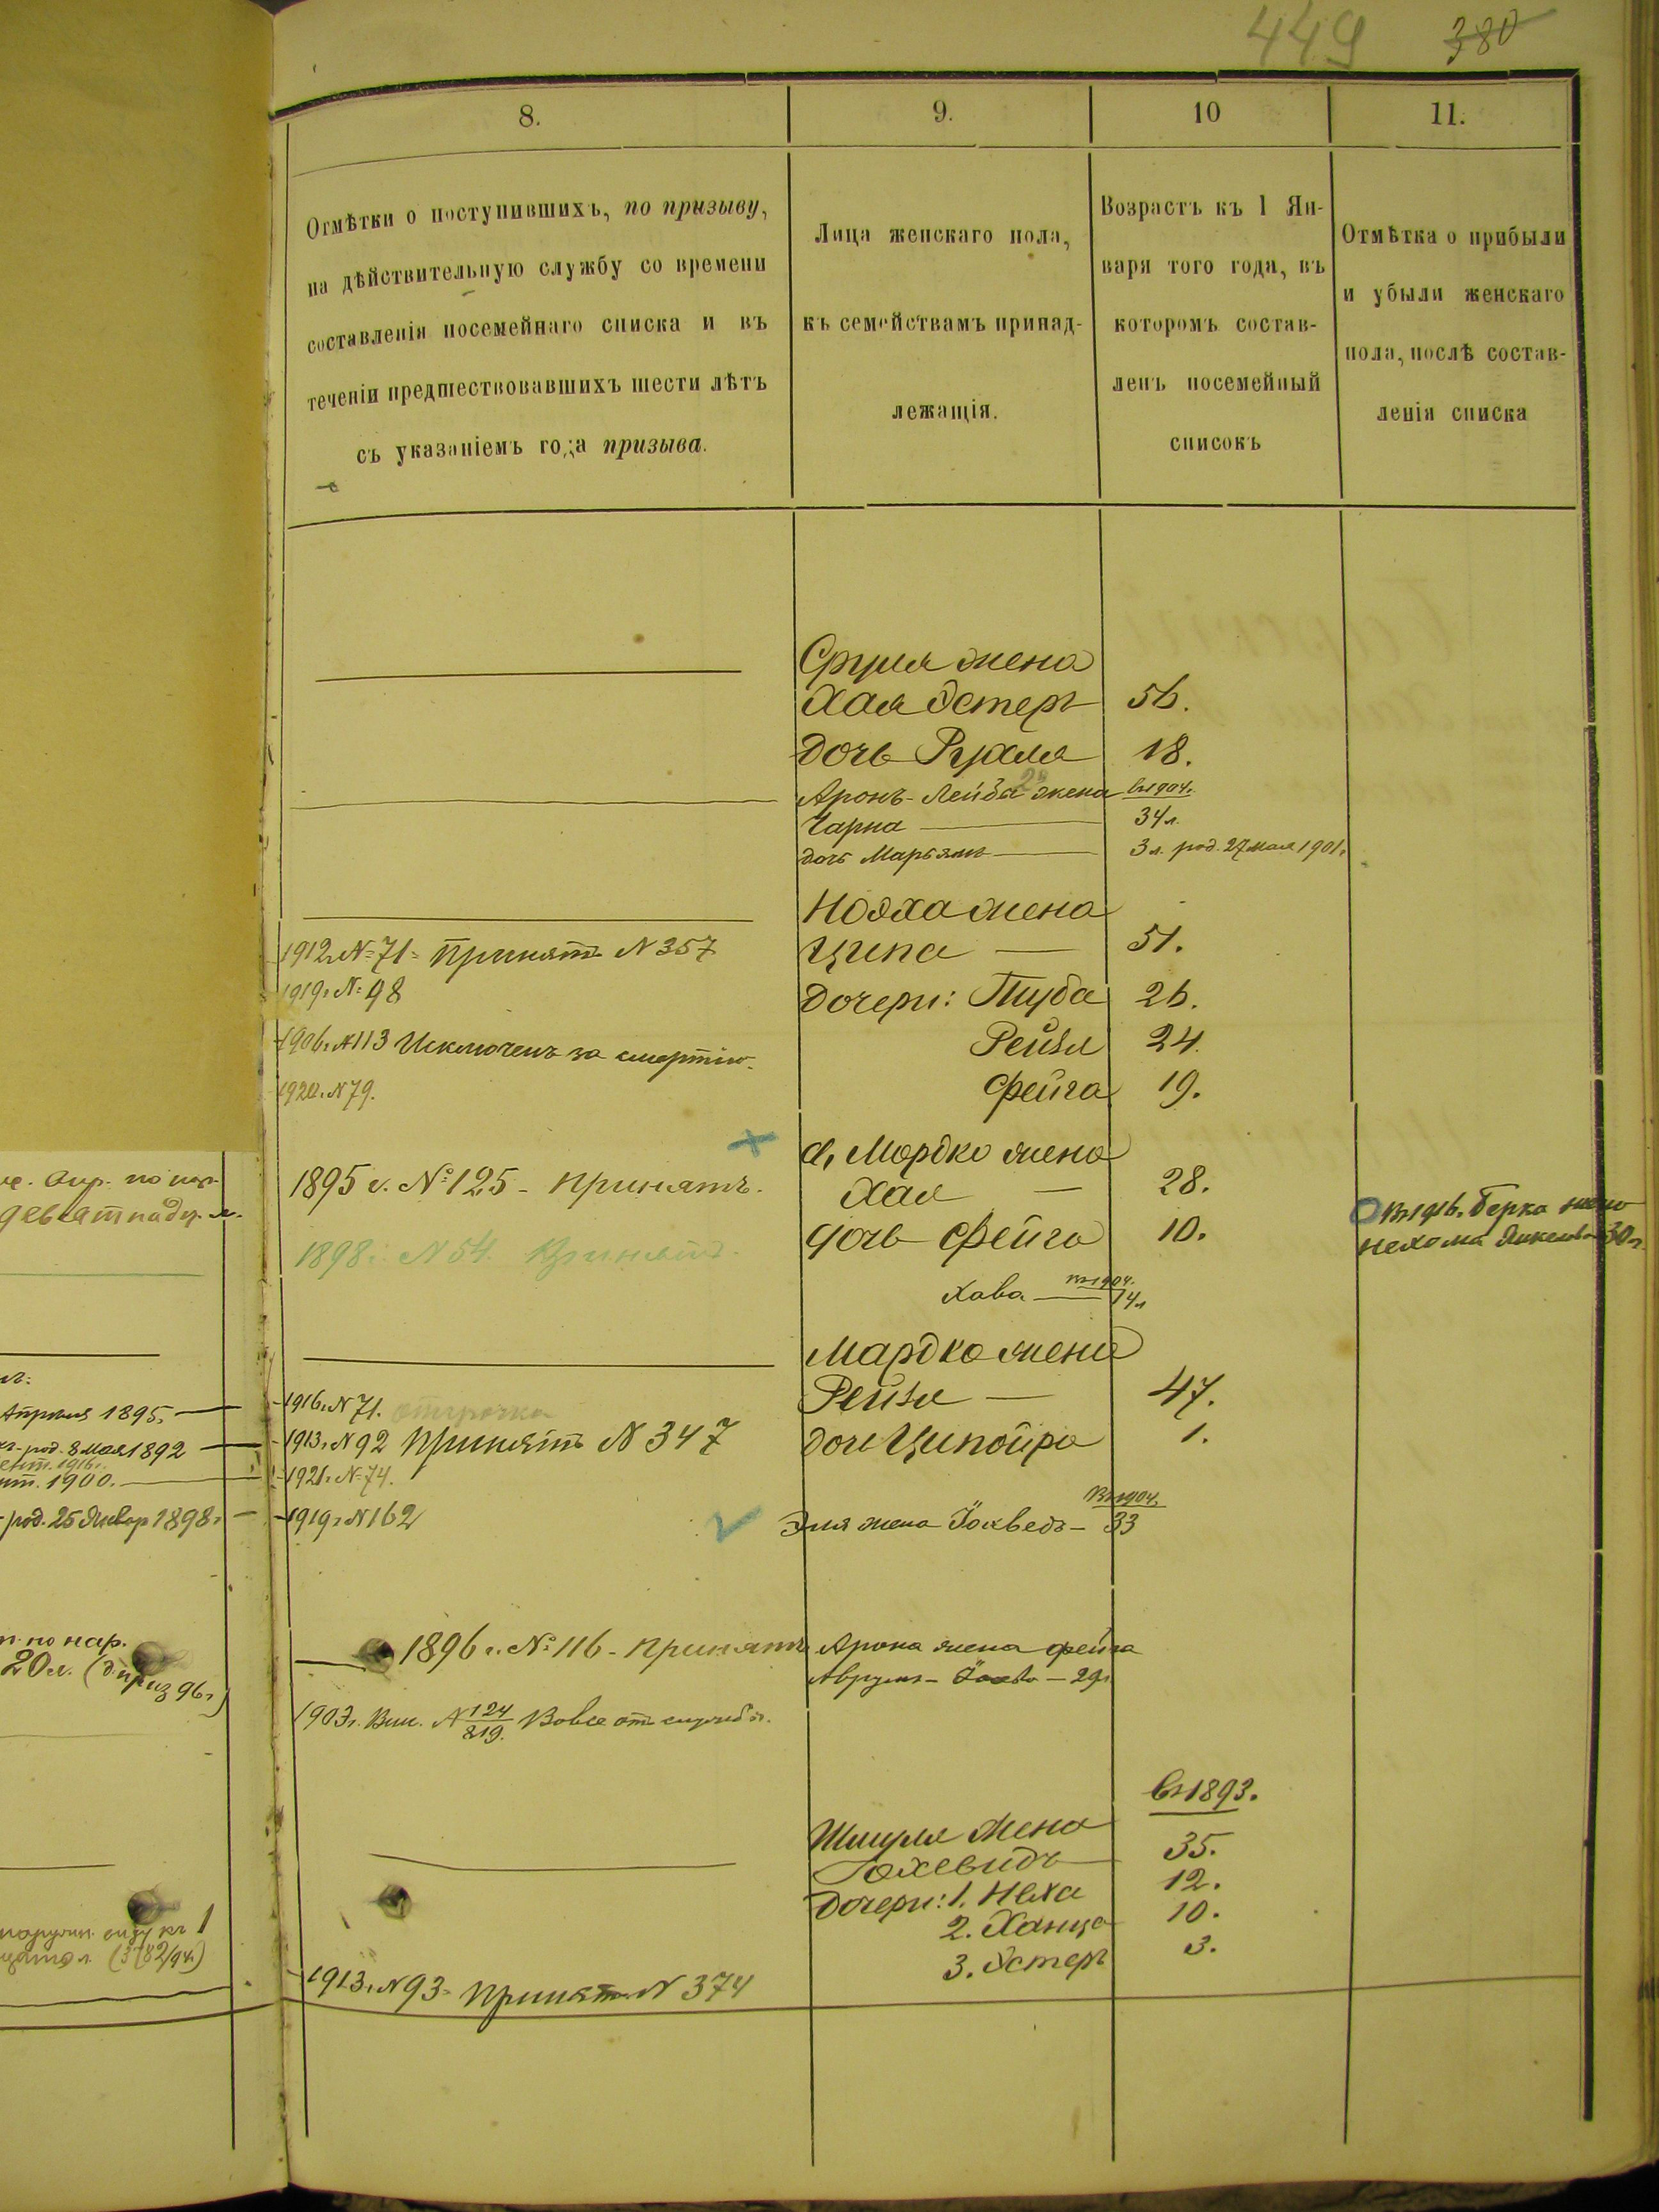 449 380
8.
9.
10
11.
Отмѣтки о поступившихъ, по призыву,
на дѣйствительную службу со времени
составленія посемейнаго списка и въ
теченіи предшествовавшихъ шести лѣтъ
съ указаніемъ года призыва.
Лица женскаго пола,
къ семействамъ принад-
лежащія.
Возрастъ къ 1 Ян-
варя того года, въ
которомъ состав-
ленъ посемейный
списокъ
Отмѣтка о прибыли
и убыли женскаго
пола, послѣ состав-
ленія списка
Сруля жена
Хая Эстеръ 56.
дочь Рухля 18.
Аронъ-Лейба жена въ 1904г.
Чарна 34 л.
дочь Марьямъ 3 л. род. 27 мая 1901г.
Ноэха жена
1912г. №71 Принятъ №357 Ципа 51.
1919г. № 98 дочери: Туба 26.
1906г. №113 Исключенъ за смертію. Рейзя 24.
1920г. №79. Фейга 19.
Мордко жена
1895 г. №125 - Принятъ. Хая 28.
дочь Фейга 10.
1898г. №54. Принятъ.
въ 1916г. Берка жена
Нехома Янкелев 30 л.
Хава въ 1904. 14 л
Мардко жена
Рейзя 47.
1916г. №71. отсрочка
1913г. №92 Принятъ №347 доч Ципойра 1.
1921г. №74.
1919г. №162 Эля жена Іохведъ - 33
въ 1904.
1896 г. №116 - Принятъ Арона жена Фейга
Аврумъ - 29л
1903г. №124/819. Вовсе от службы.
въ 1893.
Шмуля жена
Іохевидъ 35.
дочери: 1. Неха 12.
2. Ханца 10.
3. Эстеръ 3.
1913г. №93 - Принятъ №374
по нар.
девятнадц.
Апрѣля 1895г.
род. 8 мая 1892
1916г.
1900.
род. 25 Январ 1898г.
по нар.
20 л. (
приз 96г)
къ 1
(3782/94г.)